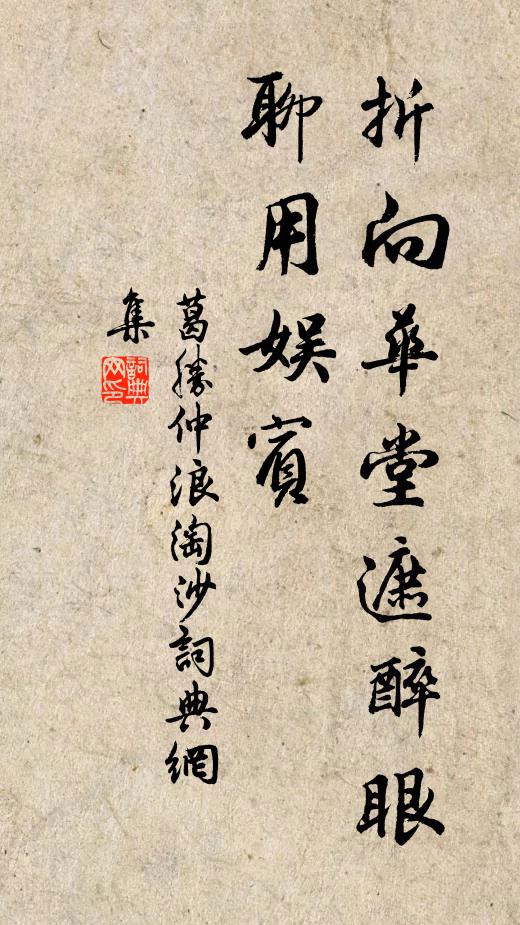 折向華堂遮醉眼
聊用娯賓
葛勝仲浪淘沙詞典網
集
詞典網印